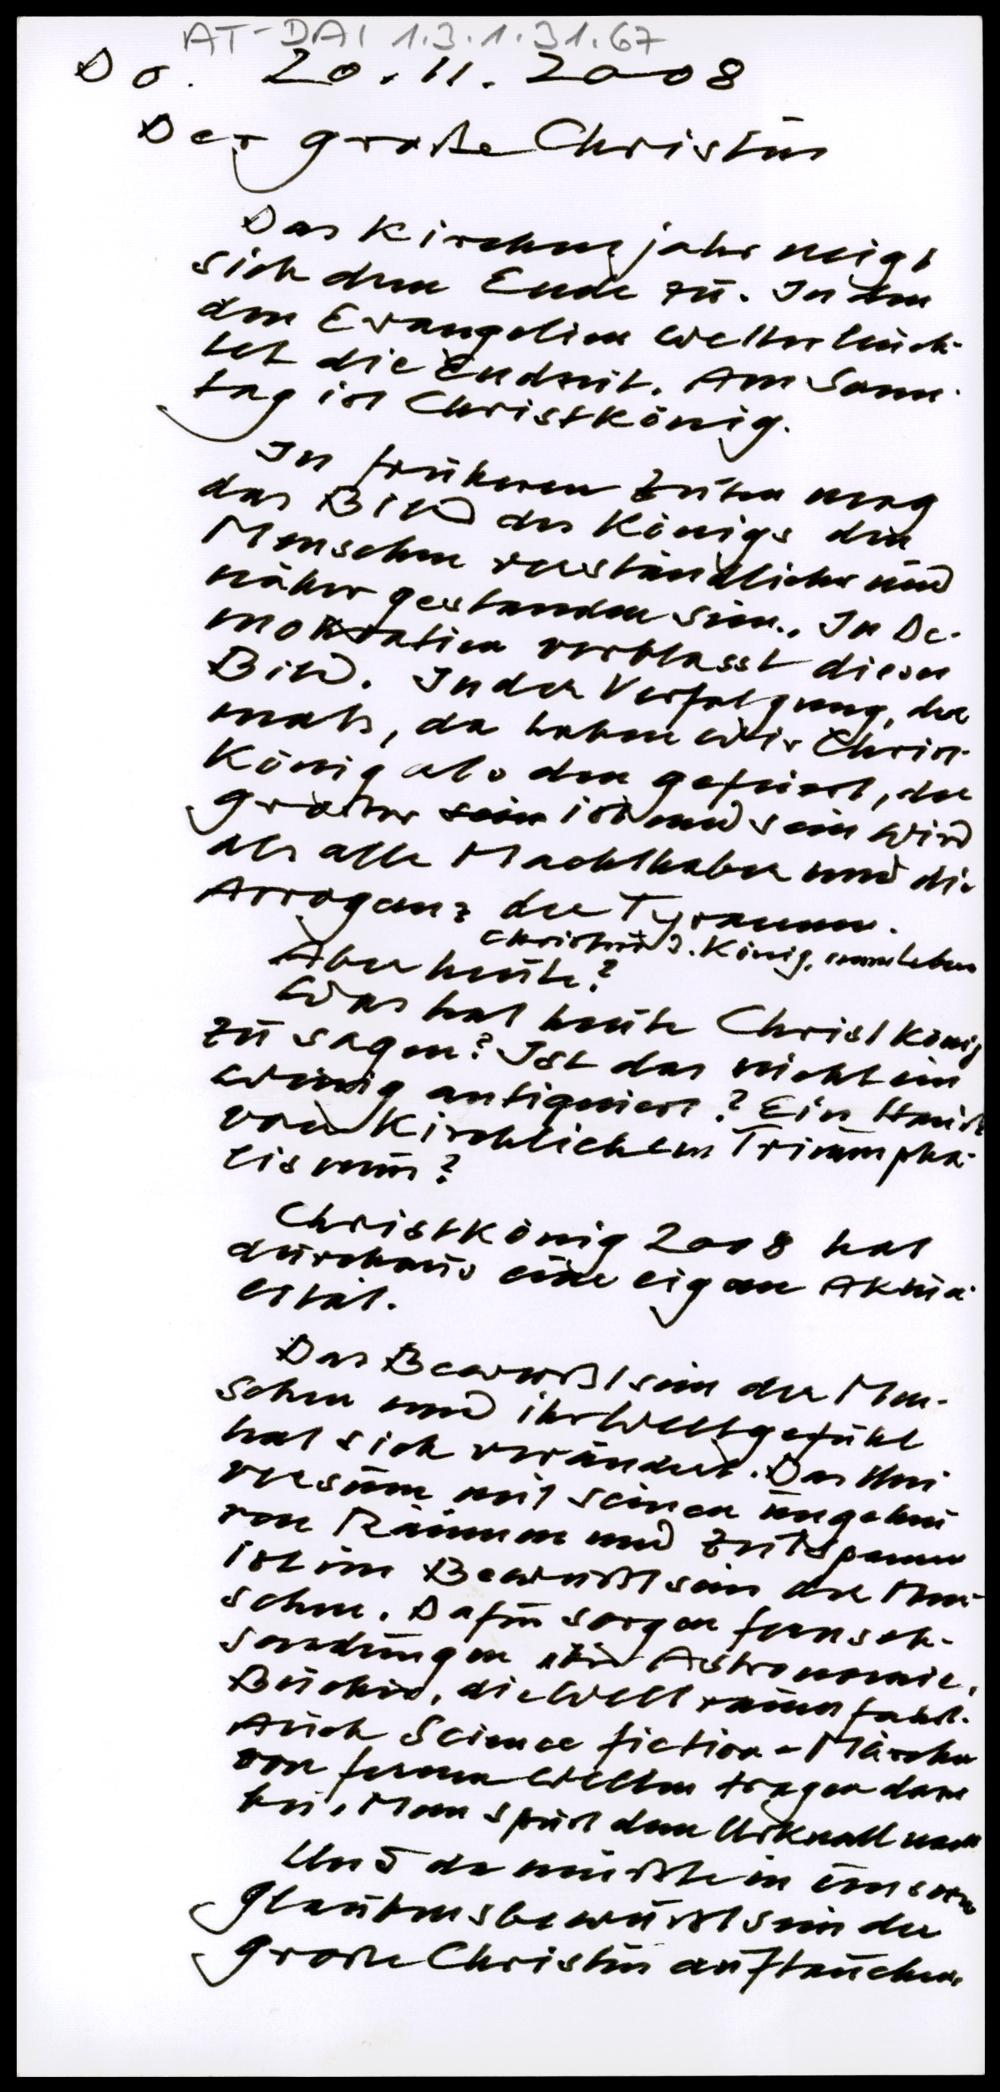 AT-DAI 1.3.1.31.67
Do. 20.11.2008
Der große Christus
Das Kirchenjahr neigt
sich dem Ende zu. In den
den Evangelien wetterleuch-
tet die Endzeit. Am Sonn-
tag ist Christkönig.
In früheren Zeiten mag
das Bild des Königs den
Menschen verständlicher und
näher gestanden sein. In De-
mokratien verblasst dieses
Bild. In der Verfolgung, da-
mals, da haben wir Christ-
König als den gefeiert, der
größer sein ist und sein wird
als alle Machthaber und die
Arroganz der Tyrannen.
Christus, m. König,
Aber heute?
Was hat heute Christkönig
zu sagen? Ist das nicht ein
wenig antiquiert? Ein Hauch
von Kirchlichem Triumpha-
lismus?
Christkönig 2008 hat
durchaus eine eigene Aktua-
lität.
Das Bewußtsein der Men-
schen und ihr Weltgefühl
hat sich verändert. Das Uni
versum mit seinen ungeheu
ren Räumen und Zeitspannen
ist im Bewußtsein der Men-
schen. Dafür sorgen Fernseh-
sendungen über Astronomie,
Bücher, die Weltraumfahrt.
Auch Science fiction-Märchen
von fernen Welten tragen dazu
bei. Man spürt dem Urknall nach
Und da müßte in unserm
Glaubensbewußtsein der
große Christus auftauchen.